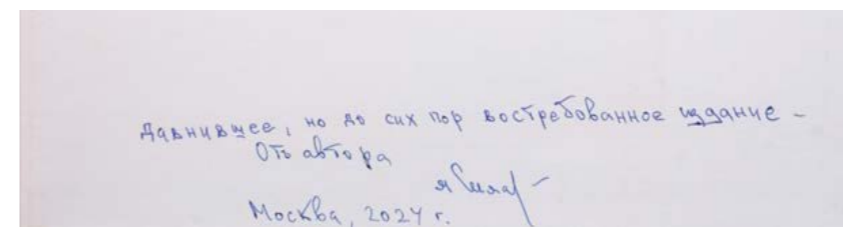 Давнившее, но до сих пор востребованное издание –
Отъ автора
Москва, 2024 г.